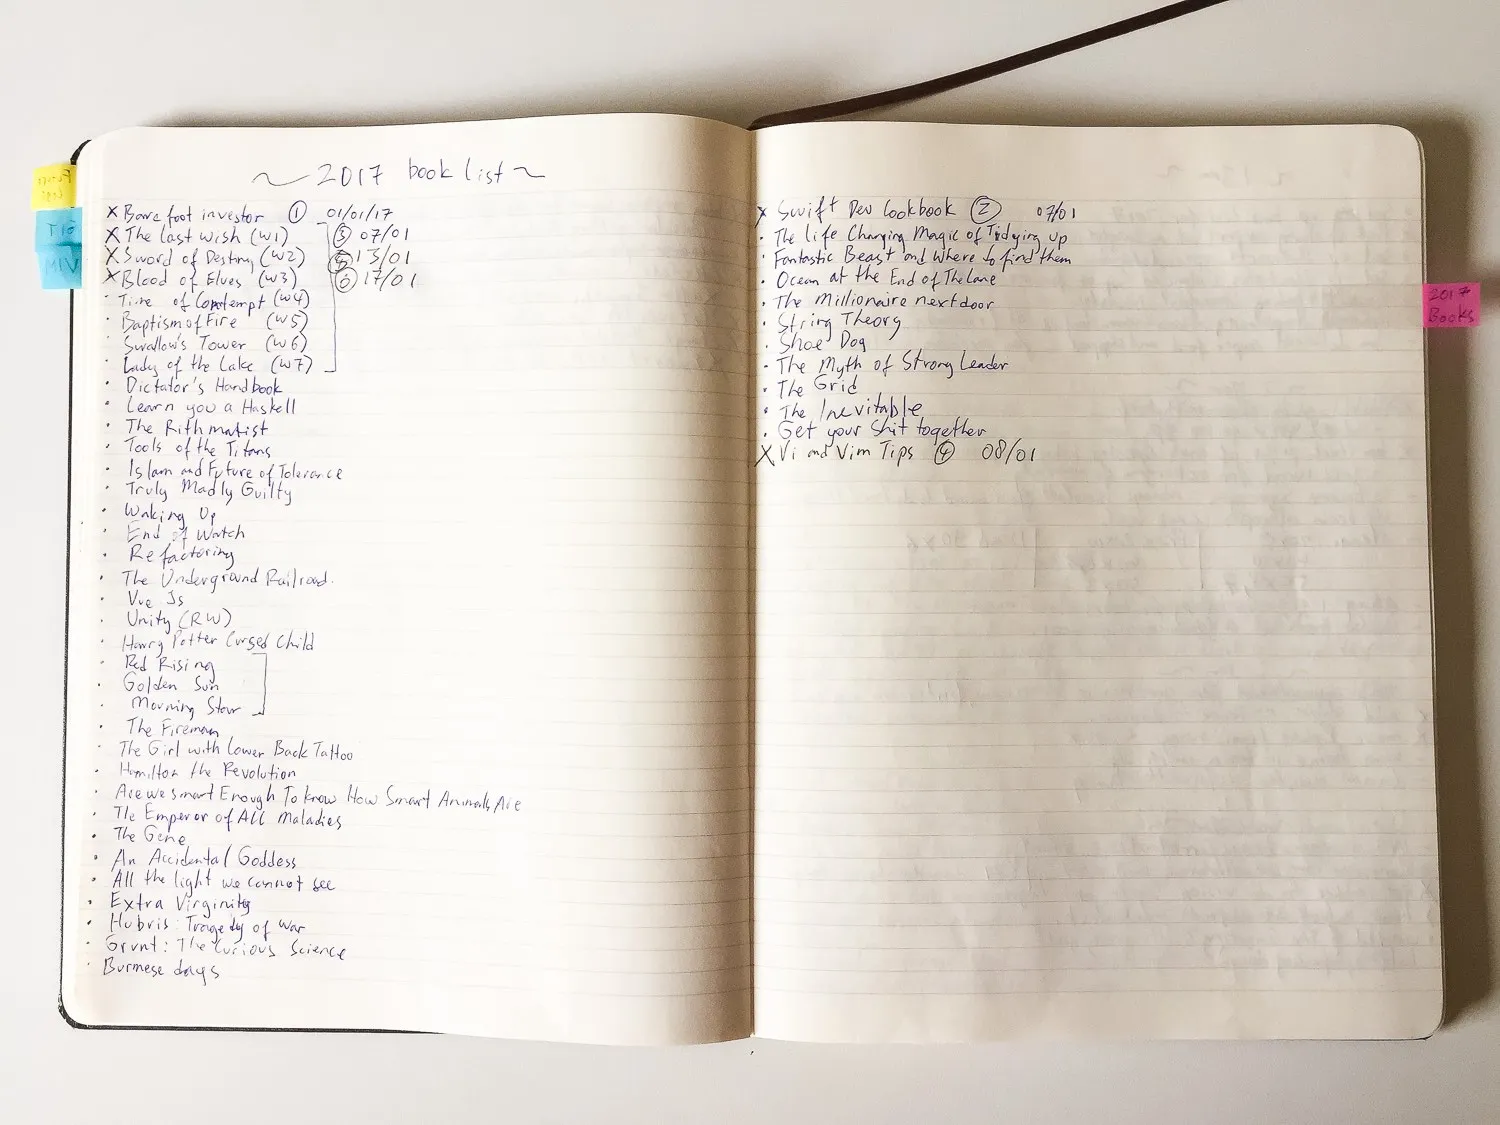 ~ 2017 book list ~
X Barefoot investor ① 01/01/17
X The Last wish (W1) ③ 07/01
X Sword of Destiny (W2) ⑤ 13/01
X Blood of Elves (W3) ⑥ 17/01
· Time of Contempt (W4)
· Baptism of Fire (W5)
· Swallow's Tower (W6)
· Lady of the Lake (W7)
· Dictator's Handbook
· Learn you a Haskell
· The Rithmatist
· Tools of the Titans
· Islam and Future of Tolerance
· Truly Madly Guilty
· Waking Up
· End of Watch
· Refactoring
· The Underground Railroad.
· Vue Js
· Unity (RW)
· Harry Potter Cursed Child
· Red Rising
· Golden Sun
· Morning Star
· The Fireman
· The Girl with Lower Back Tattoo
· Hamilton the Revolution
· Are we smart Enough To know How Smart Animals Are
· The Emperor of All Maladies
· The Gene
· An Accidental Goddess
· All the light we cannot see
· Extra Virginity
· Hubris: Tragedy of War
· Grunt: The Curious Science
· Burmese days
X Swift Dev Cookbook ② 07/01
· The Life Changing Magic of Tidying Up
· Fantastic Beast and Where to find them
· Ocean at the End of The Lane
· The Millionaire next door
· String Theory
· Shoe Dog
· The Myth of Strong Leader
· The Grid
· The Inevitable
· Get your shit together
X Vi and Vim Tips ④ 08/01
TIO
MIV
2017
Books